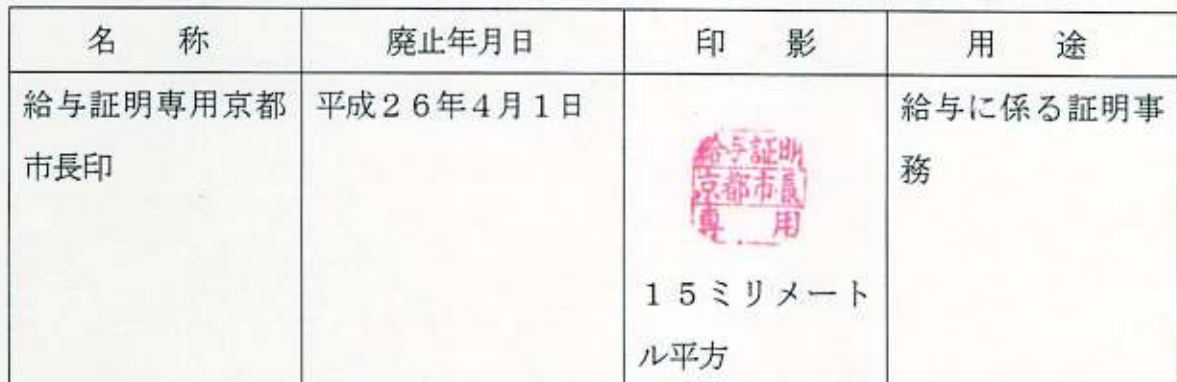 名　称
廃止年月日
印　影
用　途
給与証明専用京都
市長印
平成２６年４月１日
給与証明
京都市長
専　用
１５ミリメート
ル平方
給与に係る証明事
務